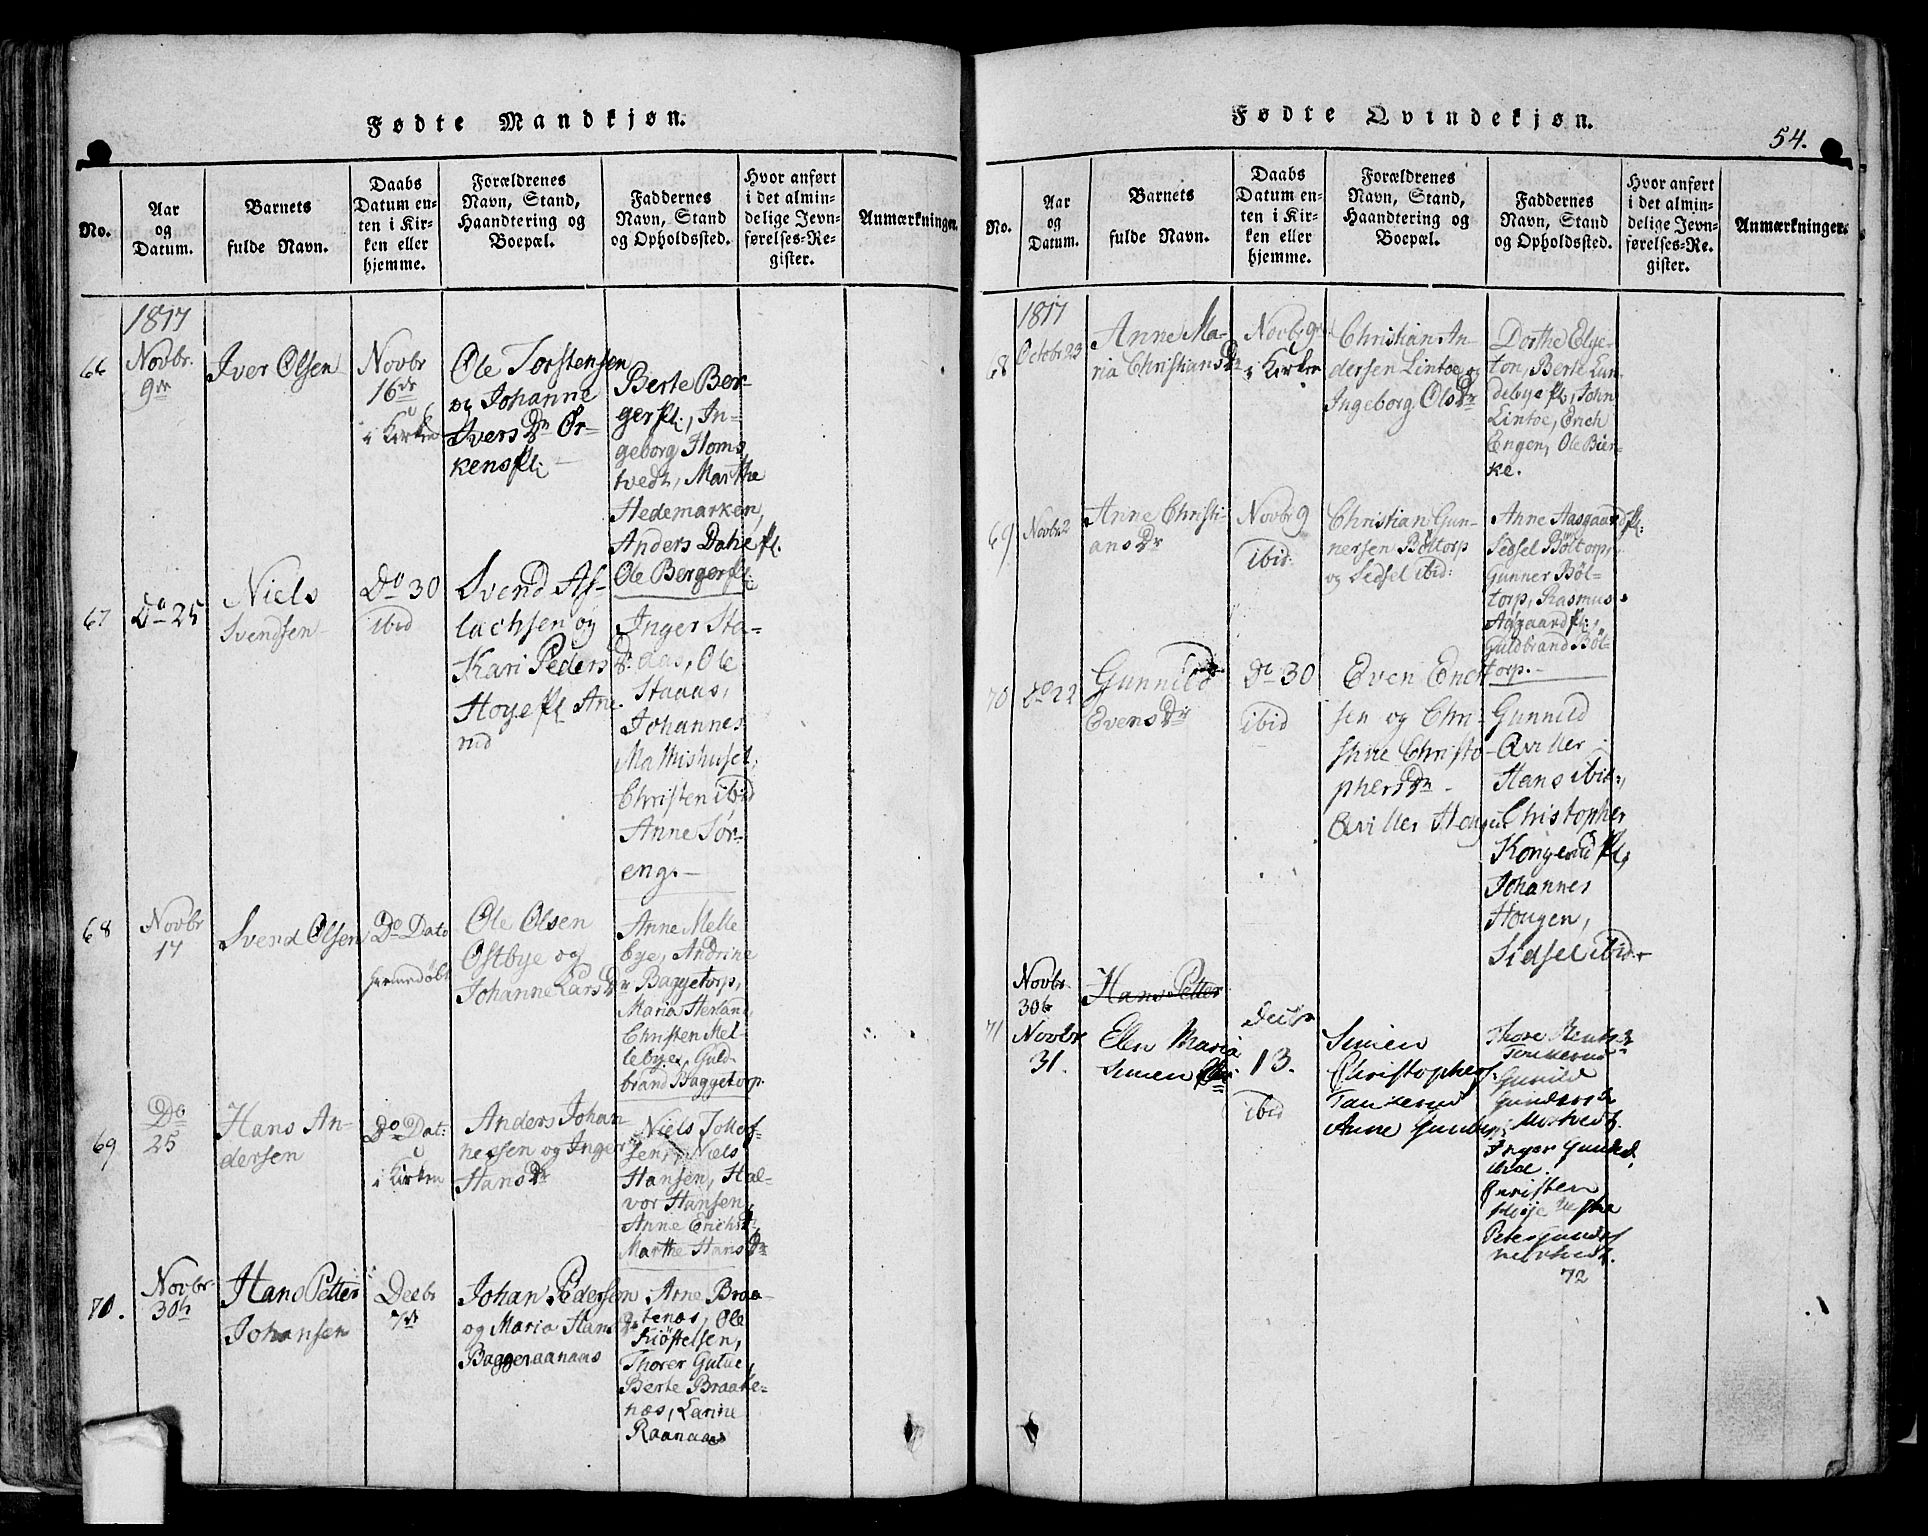 Fødte Mandkjøn.
No.
Aar
og
Datum.
Barnets
fulde Navn.
Daabs
Datum en-
ten i Kir-
ken eller
hjemme.
Forældrenes
Navn, Stand,
Haandtering og
Boepæl.
Faddernes
Navn, Stand
og Opholdssted.
Hvor anført
i det almin-
delige Jevn-
førelses-Re-
gister.
Anmærkninger.
1817
66
Novbr.
9de
Iver Olsen
Novbr
16de
i Kirken
Ole Torstensen
og Johanne
Ivers Dr Ør-
kenspl:
Berte Ber-
gerpl:, In-
geborg Homs
tvedt, Marthe
Hedemarken,
Anders Dahepl.
Ole Bergerpl:
67
Do 25
Niels
Svendsen
Do 30
ibid
Svend As-
lachsen og
Kari Peders Dr
Hoyepl Ane
rud
Inger Sta-
aas, Ole
Staaas,
Johannes
Mathishuset,
Christen ibid
Anne Sør-
eng. -
68
Novbr
17
Svend Olsen
Do Dato
hjemmedøbt
Ole Olsen
Ostbye og
Johanne Lars Dr
Anne Melle
bye, Andrine
Baggetorp,
Maria Herland
Christen Mel-
lebye, Guld-
brand Baggetorp.
69
Do
25
Hans An-
dersen
Do Dat:
i Kirken
Anders Johan
nessen og Inger
Hans Dr
Niels Tollef-
sen, Niels
Hansen, Hal-
vor Hansen,
Anne Erichs Dr,
Marthe Hans Dr
70.
Novbr
30te
Hans Petter
Johansen
Decbr
7de
Johan Pedersen
og Maria Hans Dr
Baggeraanaas
Arne Braa-
tenæs, Ole
Kiøstelsen,
Thorer Gutue,
Berte Braate-
næs, Karine
Raanaas
Fødte Qvindekjøn.
54.
No.
Aar
og
Datum.
Barnets
fulde Navn.
Daabs
Datum en-
ten i Kir-
ken eller
hjemme.
Forældrenes
Navn, Stand,
Haandtering og
Boepæl.
Faddernes
Navn, Stand
og Opholdssted.
Hvor anført
i det almin-
delige Jevn-
førelses-Re-
gister.
Anmærkninger.
1817
68
Octobr 23
Anne Ma-
ria Christians Dr
Novbr 9de
i Kirken
Christian An-
dersen Lintoe og
Ingeborg Ols Dr
Dorthe Elge-
ton, Berte Lun
debyepl, John
Lintoe, Erich
Engen, Ole Bier-
ke.
69
Novbr 2
Anne Christi-
ans Dr
Novbr 9
ibid:
Christian Gun-
nersen Böltorp
og Sidsel ibid:
Anne Aasgaardpl:
Sidsel Böltorp,
Gunner Böl-
torp, Rasmus
Asgaardpl:,
Guldbrand Böl-
torp. -
70
Do 22
Gunnild
Evens Dr
Do 30
ibid
Even Erich
sen og Chri-
stine Christo-
phers Dr -
Qviller Hougen
Gunnild
Qviller
Hans ibid:,
Christopher
Kongerudpl,
Johannes
Hougen,
Sidsel ibid.
Novbr.
30te
Hans Petter
71
Novbr
31.
Ellen Maria
Simen Dr
Decbr
13.
ibid
Simen
Christophers.
Tankerud
Anne Gunders
Thore
Tankerud
Gunild
Inger
ibid.
Christen
72